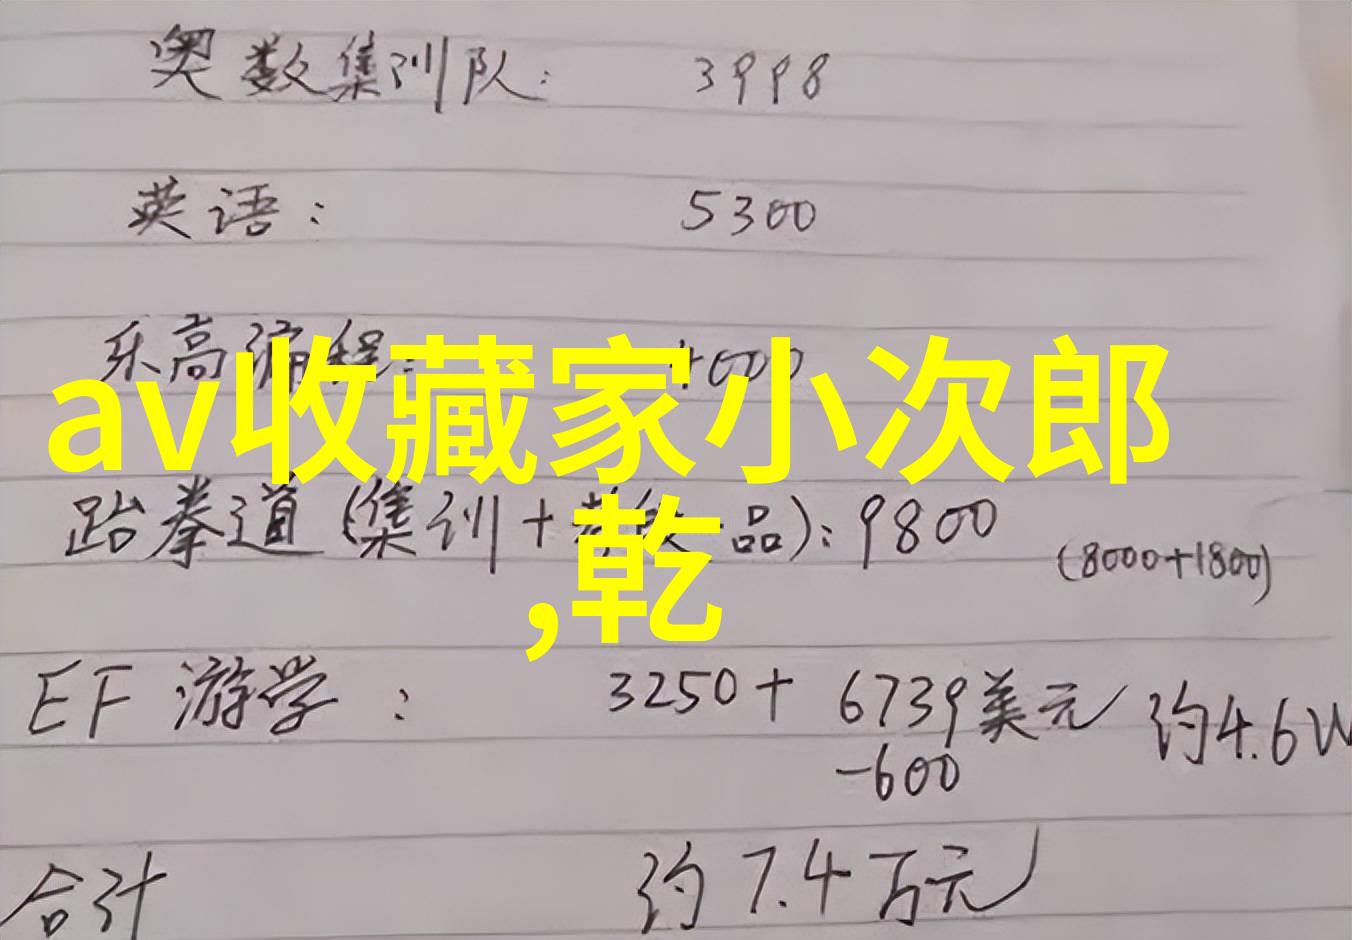 奥数集训队: 3998
英语: 5300
乐高编程:
av收藏家小次郎
跆拳道(集训+ 品): 9800 (8000+1800)
,乾
EF 游学: 3250+ 6739美元 约4.6W
-600
合计 约7.4万元